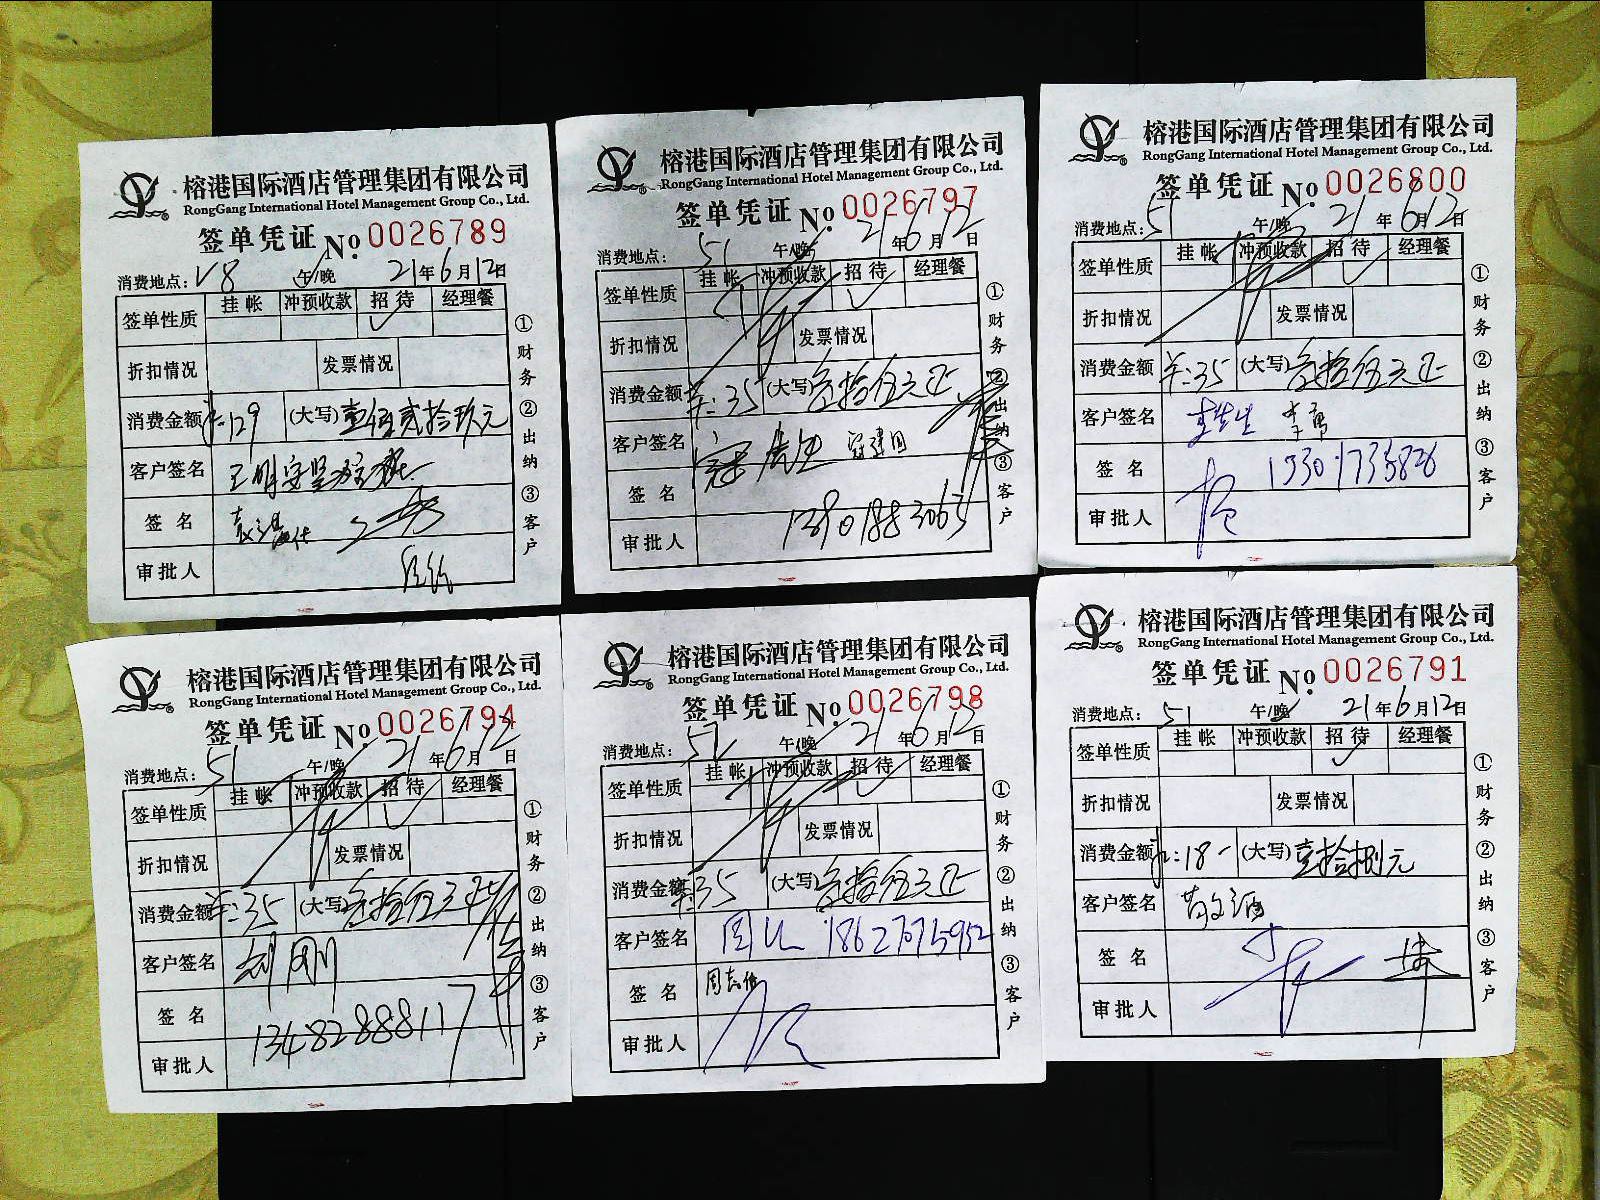 榕港国际酒店管理集团有限公司
RongGang International Hotel Management Group Co., Ltd.
签单凭证 No. 0026789
消费地点: V8 午/晚 21年6月12日
签单性质 挂帐 冲预收款 招待 经理餐
折扣情况 发票情况
消费金额 129 (大写) 壹佰贰拾玖元
客户签名
签名
审批人
①财务 ②出纳 ③客户
榕港国际酒店管理集团有限公司
RongGang International Hotel Management Group Co., Ltd.
签单凭证 No. 0026797
消费地点: 51 午/晚 21年6月12日
签单性质 挂帐 冲预收款 招待 经理餐
折扣情况 发票情况
消费金额 ¥:35 (大写) 叁拾伍元正
客户签名 寇建国
签名
审批人 13901883065
①财务 ②出纳 ③客户
榕港国际酒店管理集团有限公司
RongGang International Hotel Management Group Co., Ltd.
签单凭证 No. 0026800
消费地点: 51 午/晚 21年6月12日
签单性质 挂帐 冲预收款 招待 经理餐
折扣情况 发票情况
消费金额 ¥:35 (大写) 叁拾伍元正
客户签名 李先生 李勇
签名 19301735828
审批人
①财务 ②出纳 ③客户
榕港国际酒店管理集团有限公司
RongGang International Hotel Management Group Co., Ltd.
签单凭证 No. 0026794
消费地点: 51 午/晚 21年6月12日
签单性质 挂帐 冲预收款 招待 经理餐
折扣情况 发票情况
消费金额 ¥:35 (大写) 叁拾伍元正
客户签名 刘刚
签名 13482888117
审批人
①财务 ②出纳 ③客户
榕港国际酒店管理集团有限公司
RongGang International Hotel Management Group Co., Ltd.
签单凭证 No. 0026798
消费地点: 52 午/晚 21年6月12日
签单性质 挂帐 冲预收款 招待 经理餐
折扣情况 发票情况
消费金额 ¥:35 (大写) 叁拾伍元正
客户签名 18627075952
签名 周志伟
审批人
①财务 ②出纳 ③客户
榕港国际酒店管理集团有限公司
RongGang International Hotel Management Group Co., Ltd.
签单凭证 No. 0026791
消费地点: 51 午/晚 21年6月12日
签单性质 挂帐 冲预收款 招待 经理餐
折扣情况 发票情况
消费金额 ¥:18- (大写) 壹拾捌元
客户签名
签名
审批人
①财务 ②出纳 ③客户